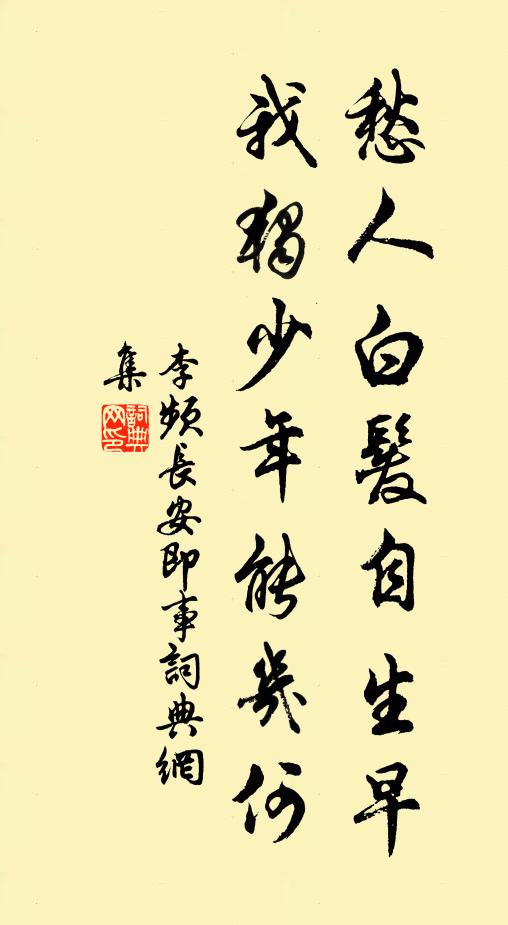 愁人白髮自生早
我獨少年能幾何
李頻長安即事詞典網
集
詞典
网印